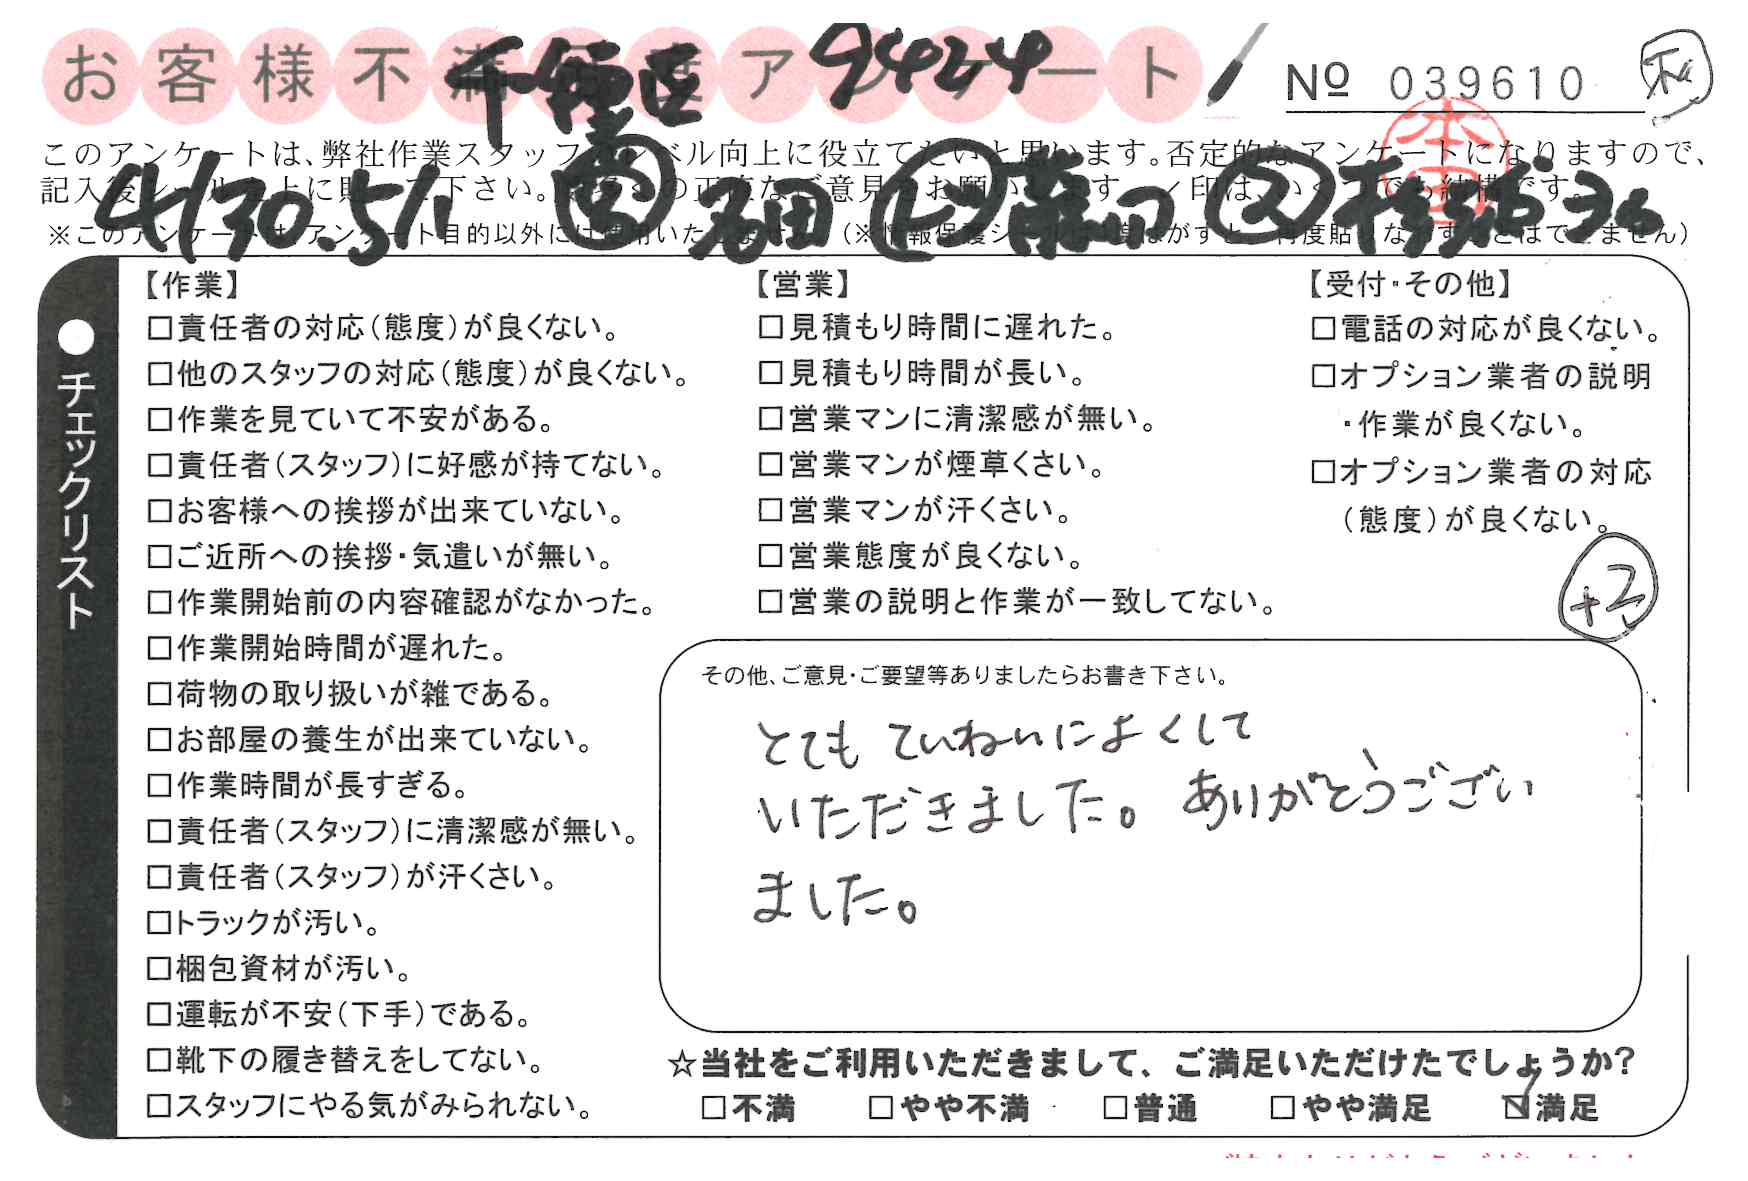 お客様不満足度アンケート
千種区 9424
№ 039610
このアンケートは、弊社作業スタッフのレベル向上に役立てたいと思います。否定的なアンケートになりますので、
4/30.5/1
【作業】
□責任者の対応(態度)が良くない。
□他のスタッフの対応(態度)が良くない。
□作業を見ていて不安がある。
□責任者(スタッフ)に好感が持てない。
□お客様への挨拶が出来ていない。
□ご近所への挨拶・気遣いが無い。
□作業開始前の内容確認がなかった。
□作業開始時間が遅れた。
□荷物の取り扱いが雑である。
□お部屋の養生が出来ていない。
□作業時間が長すぎる。
□責任者(スタッフ)に清潔感が無い。
□責任者(スタッフ)が汗くさい。
□トラックが汚い。
□梱包資材が汚い。
□運転が不安(下手)である。
□靴下の履き替えをしてない。
□スタッフにやる気がみられない。
【営業】
□見積もり時間に遅れた。
□見積もり時間が長い。
□営業マンに清潔感が無い。
□営業マンが煙草くさい。
□営業マンが汗くさい。
□営業態度が良くない。
□営業の説明と作業が一致してない。
【受付・その他】
□電話の対応が良くない。
□オプション業者の説明
・作業が良くない。
□オプション業者の対応
(態度)が良くない。
+3
●チェックリスト
その他、ご意見・ご要望等ありましたらお書き下さい。
とても ていねいによくして
いただきました。ありがとうござい
ました。
☆当社をご利用いただきまして、ご満足いただけたでしょうか?
□不満 □やや不満 □普通 □やや満足 ☑満足